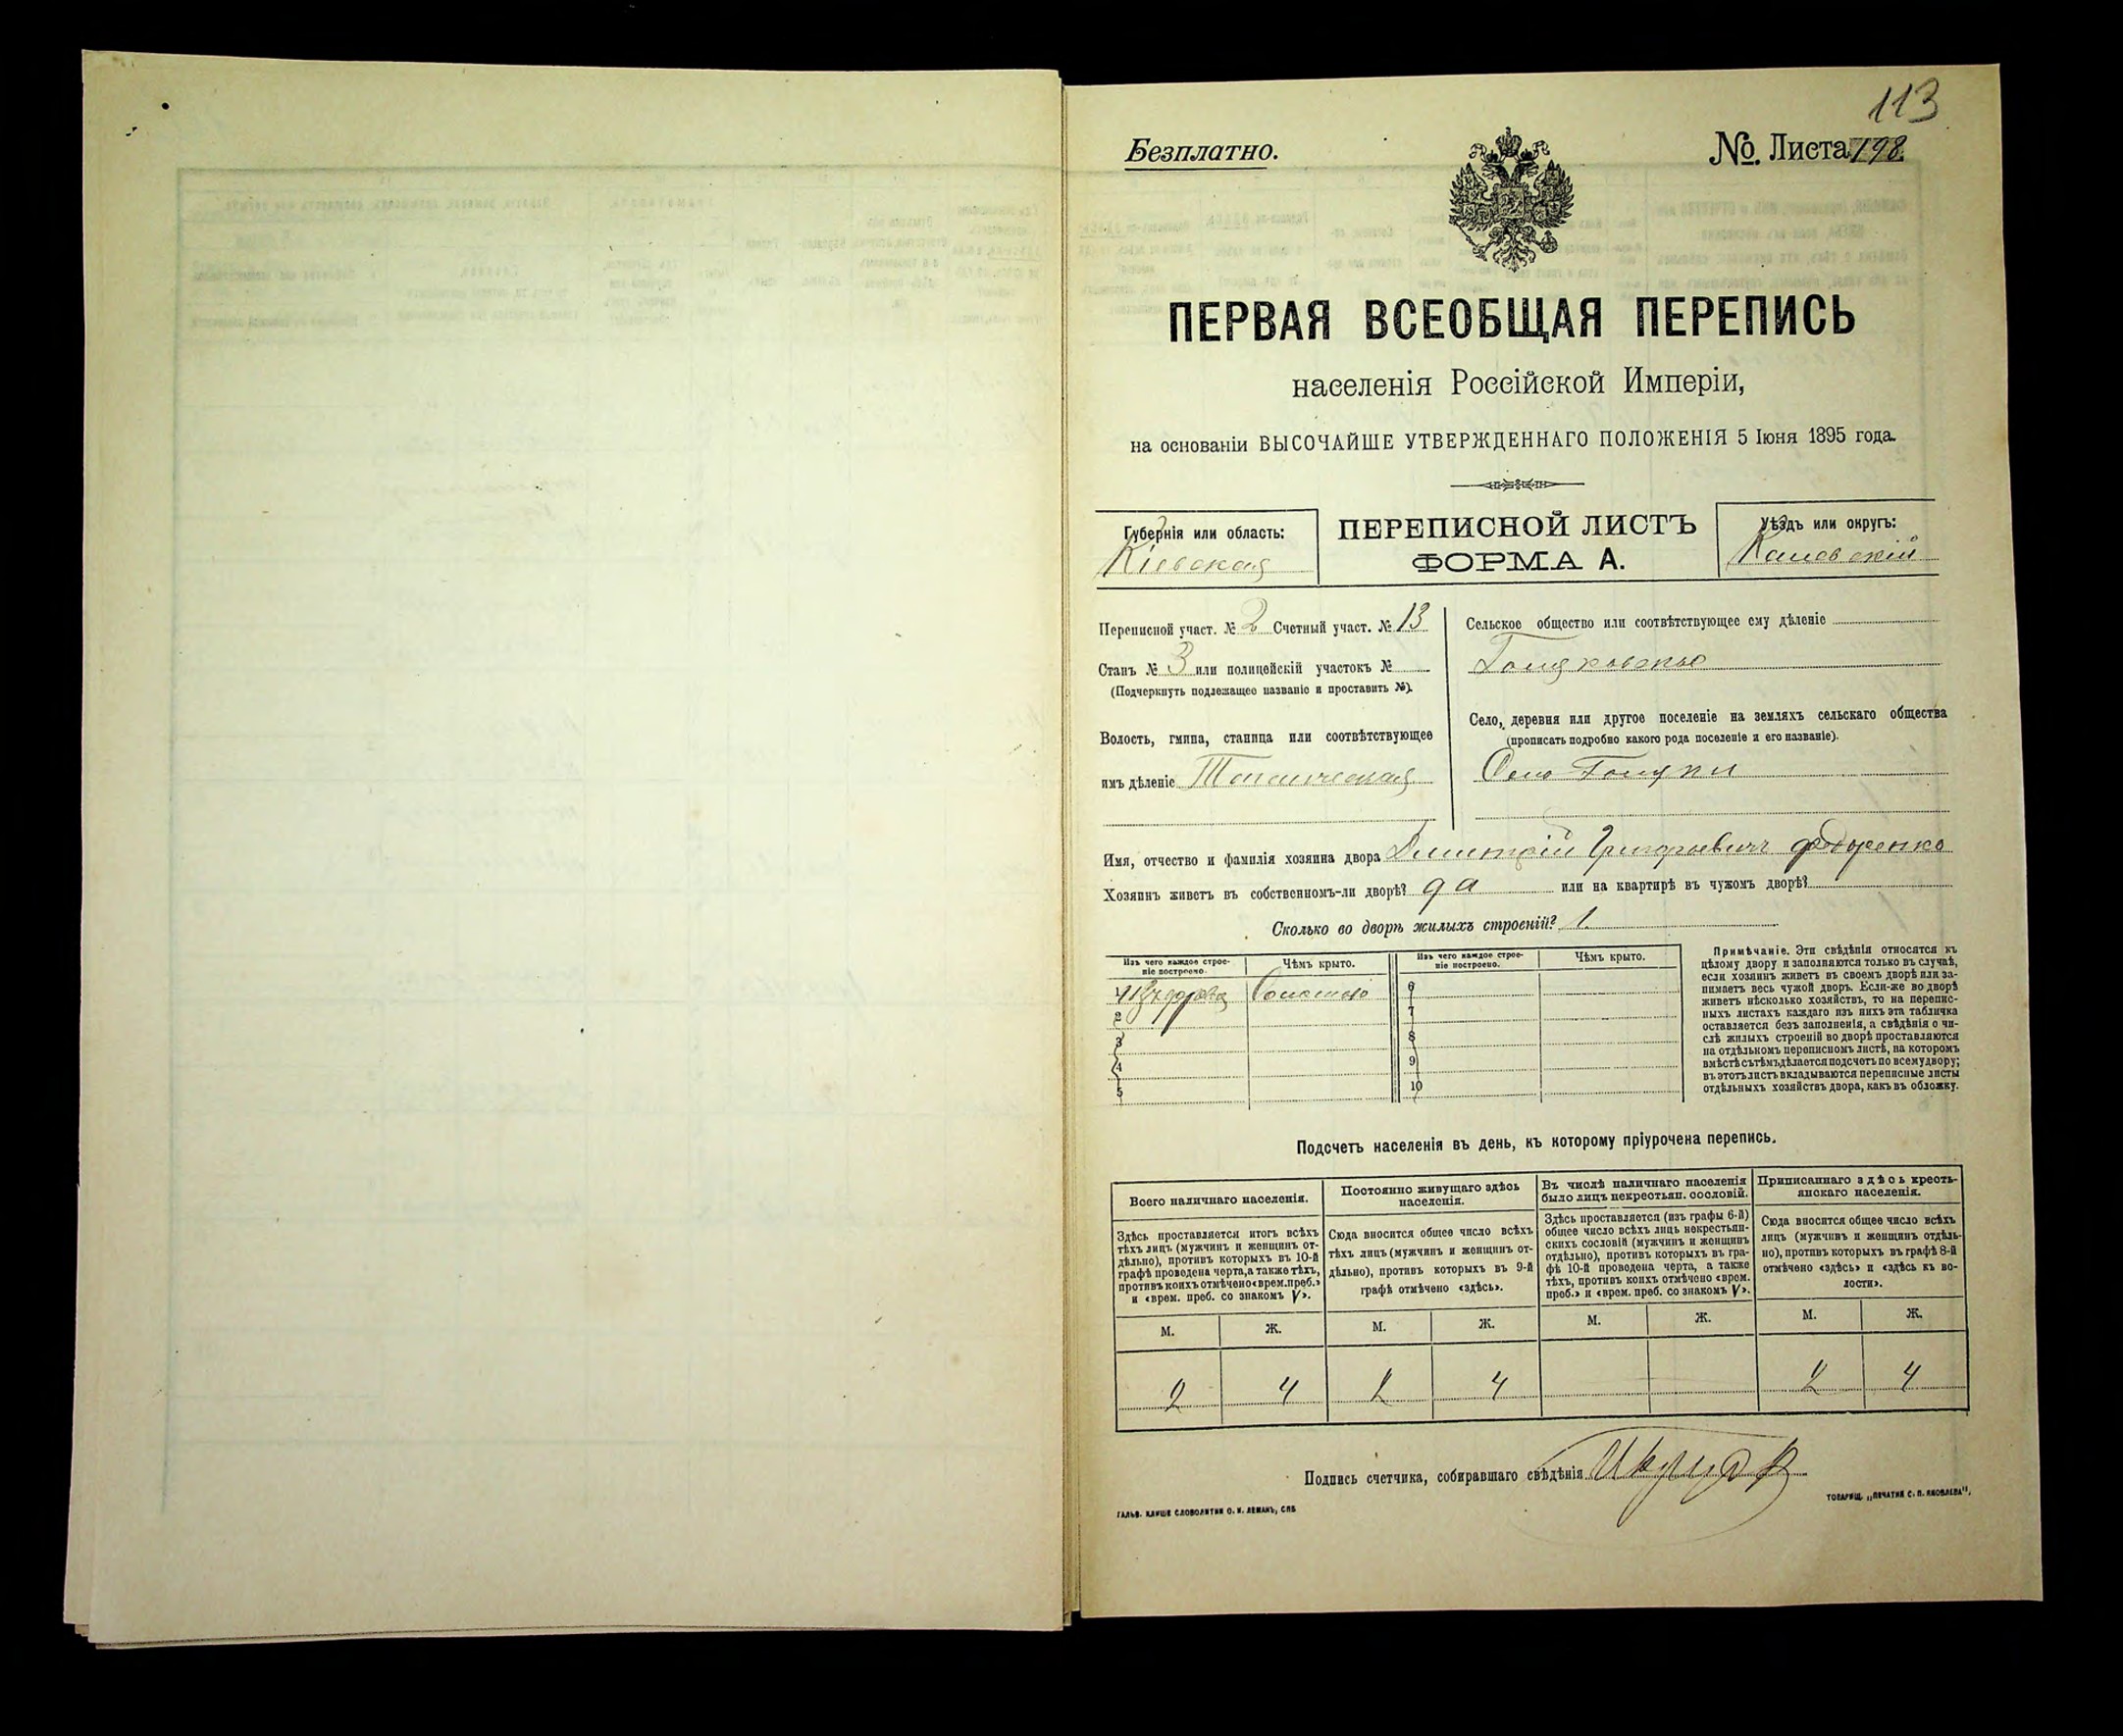 113
Безплатно.
№ Листа 198.
ПЕРВАЯ ВСЕОБЩАЯ ПЕРЕПИСЬ
населенія Россійской Имперіи,
на основаніи ВЫСОЧАЙШЕ УТВЕРЖДЕННАГО ПОЛОЖЕНІЯ 5 Іюня 1895 года.
Губернія или область:
Кіевская
ПЕРЕПИСНОЙ ЛИСТЪ
ФОРМА А.
Уѣздъ или округъ:
Каневскій
Переписной участ. № 2 Счетный участ. № 13
Станъ № 3 или полицейскій участокъ №
(Подчеркнуть подлежащее названіе и проставить №).
Волость, гмина, станица или соотвѣтствующее
имъ дѣленіе
Сельское общество или соотвѣтствующее ему дѣленіе
Село, деревня или другое поселеніе на земляхъ сельскаго общества
(прописать подробно какого рода поселеніе и его названіе).
Село Голяки
Имя, отчество и фамилія хозяина двора Димитрій Григорьевичъ Федоренко
Хозяинъ живетъ въ собственномъ-ли дворѣ? да или на квартирѣ въ чужомъ дворѣ?
Сколько во дворѣ жилыхъ строеній? 1.
Изъ чего каждое строе-
ніе построено.
Чѣмъ крыто.
Изъ чего каждое строе-
ніе построено.
Чѣмъ крыто.
1 Изъ дерева Соломою
2
3
4
5
6
7
8
9
10
Примѣчаніе. Эти свѣдѣнія относятся къ
цѣлому двору и заполняются только въ случаѣ,
если хозяинъ живетъ въ своемъ дворѣ или за-
нимаетъ весь чужой дворъ. Если-же во дворѣ
живетъ нѣсколько хозяйствъ, то на перепис-
ныхъ листахъ каждаго изъ нихъ эта табличка
оставляется безъ заполненія, а свѣдѣнія о чи-
слѣ жилыхъ строеній во дворѣ проставляются
на отдѣльномъ переписномъ листѣ, на которомъ
вмѣстѣ съ тѣмъ дѣлается подсчетъ по всему двору;
въ этотъ листъ вкладываются переписные листы
отдѣльныхъ хозяйствъ двора, какъ въ обложку.
Подсчетъ населенія въ день, къ которому пріурочена перепись.
Всего наличнаго населенія.
Здѣсь проставляется итогъ всѣхъ
тѣхъ лицъ (мужчинъ и женщинъ от-
дѣльно), противъ которыхъ въ 10-й
графѣ проведена черта, а также тѣхъ,
противъ коихъ отмѣчено «врем. преб.»
и «врем. преб. со знакомъ V».
Постоянно живущаго здѣсь
населенія.
Сюда вносится общее число всѣхъ
тѣхъ лицъ (мужчинъ и женщинъ от-
дѣльно), противъ которыхъ въ 9-й
графѣ отмѣчено «здѣсь».
Въ числѣ наличнаго населенія
было лицъ некрестьян. сословій.
Здѣсь проставляется (изъ графы 6-й)
общее число всѣхъ лицъ некрестьян-
скихъ сословій (мужчинъ и женщинъ
отдѣльно), противъ которыхъ въ гра-
фѣ 10-й проведена черта, а также
тѣхъ, противъ коихъ отмѣчено «врем.
преб.» и «врем. преб. со знакомъ V».
Приписаннаго здѣсь кресть-
янскаго населенія.
Сюда вносится общее число всѣхъ
лицъ (мужчинъ и женщинъ отдѣль-
но), противъ которыхъ въ графѣ 8-й
отмѣчено «здѣсь» и «здѣсь къ во-
лости».
М. Ж. М. Ж. М. Ж. М. Ж.
2 4 2 4 2 4
Подпись счетчика, собиравшаго свѣдѣнія
ГАЛЬВ. КЛИШЕ СЛОВОЛИТНИ О. И. ЛЕМАНЪ, СПБ
ТОВАРИЩ. „ПЕЧАТНЯ С. П. ЯКОВЛЕВА".